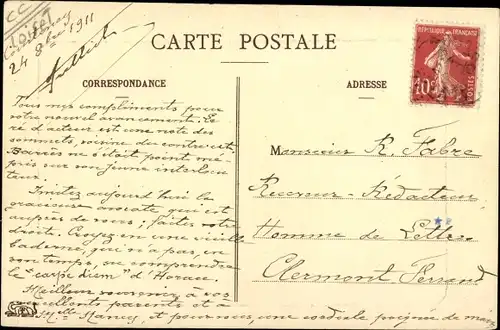 LOIRET
24 8bre 1911
CARTE POSTALE
CORRESPONDANCE
ADRESSE
REPUBLIQUE FRANÇAISE
POSTES
10
Tous nos compliments pour
votre nouvel avancement. Le
ré d'acteur est une note des
sommets, voisine du contre-ut.
Barrès ne s'était point mé-
pris sur son jeune interlocu-
teur.
Imitez aujourd'hui la
gracieuse avocate qui est
auprès de vous ; faites votre
droit. Croyez-en une vieille
baderne, qui n'a pas, en
son temps, su comprendre
le "carpe diem" d'Horace.
Meilleur souvenir à vos
excellents parents et à
Melle Nancy et pour vous, une cordiale poignée de main
Monsieur R. Fabre
Receveur-Rédacteur
Homme de Lettres
Clermont Ferrand